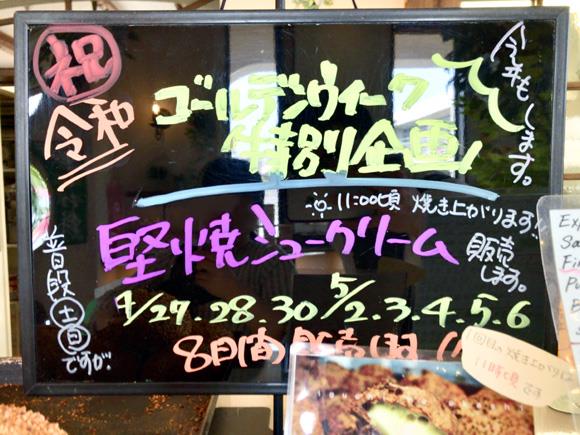 祝
令和
今年もします。
ゴールデンウィーク
特別企画
11:00頃 焼き上がります!
堅焼シュークリーム
販売
します。
普段
土
日
ですが
4/27.28.30 5/2.3.4.5.6
8日間
1回目の焼き上がりは
11時頃です